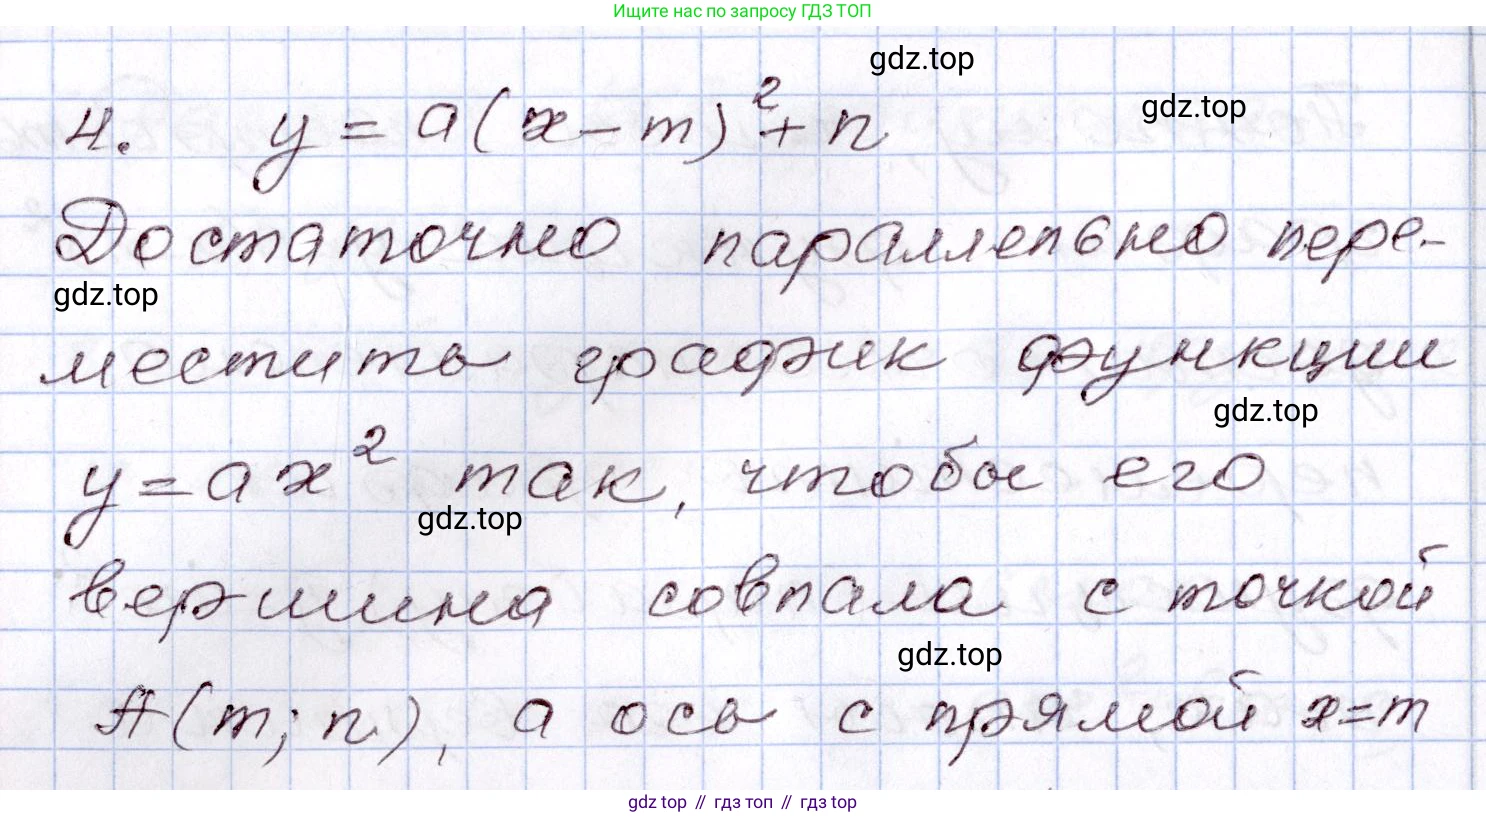 Ищите нас по запросу ГДЗ ТОП
gdz.top
gdz.top
4. y = a(x - m)² + n
Достаточно параллельно пере-
gdz.top
местить график функции
gdz.top
y = ax² так, чтобы его
gdz.top
вершина совпала с точкой
gdz.top
A(m; n), а ось с прямой x=m
gdz top // гдз топ // гдз top